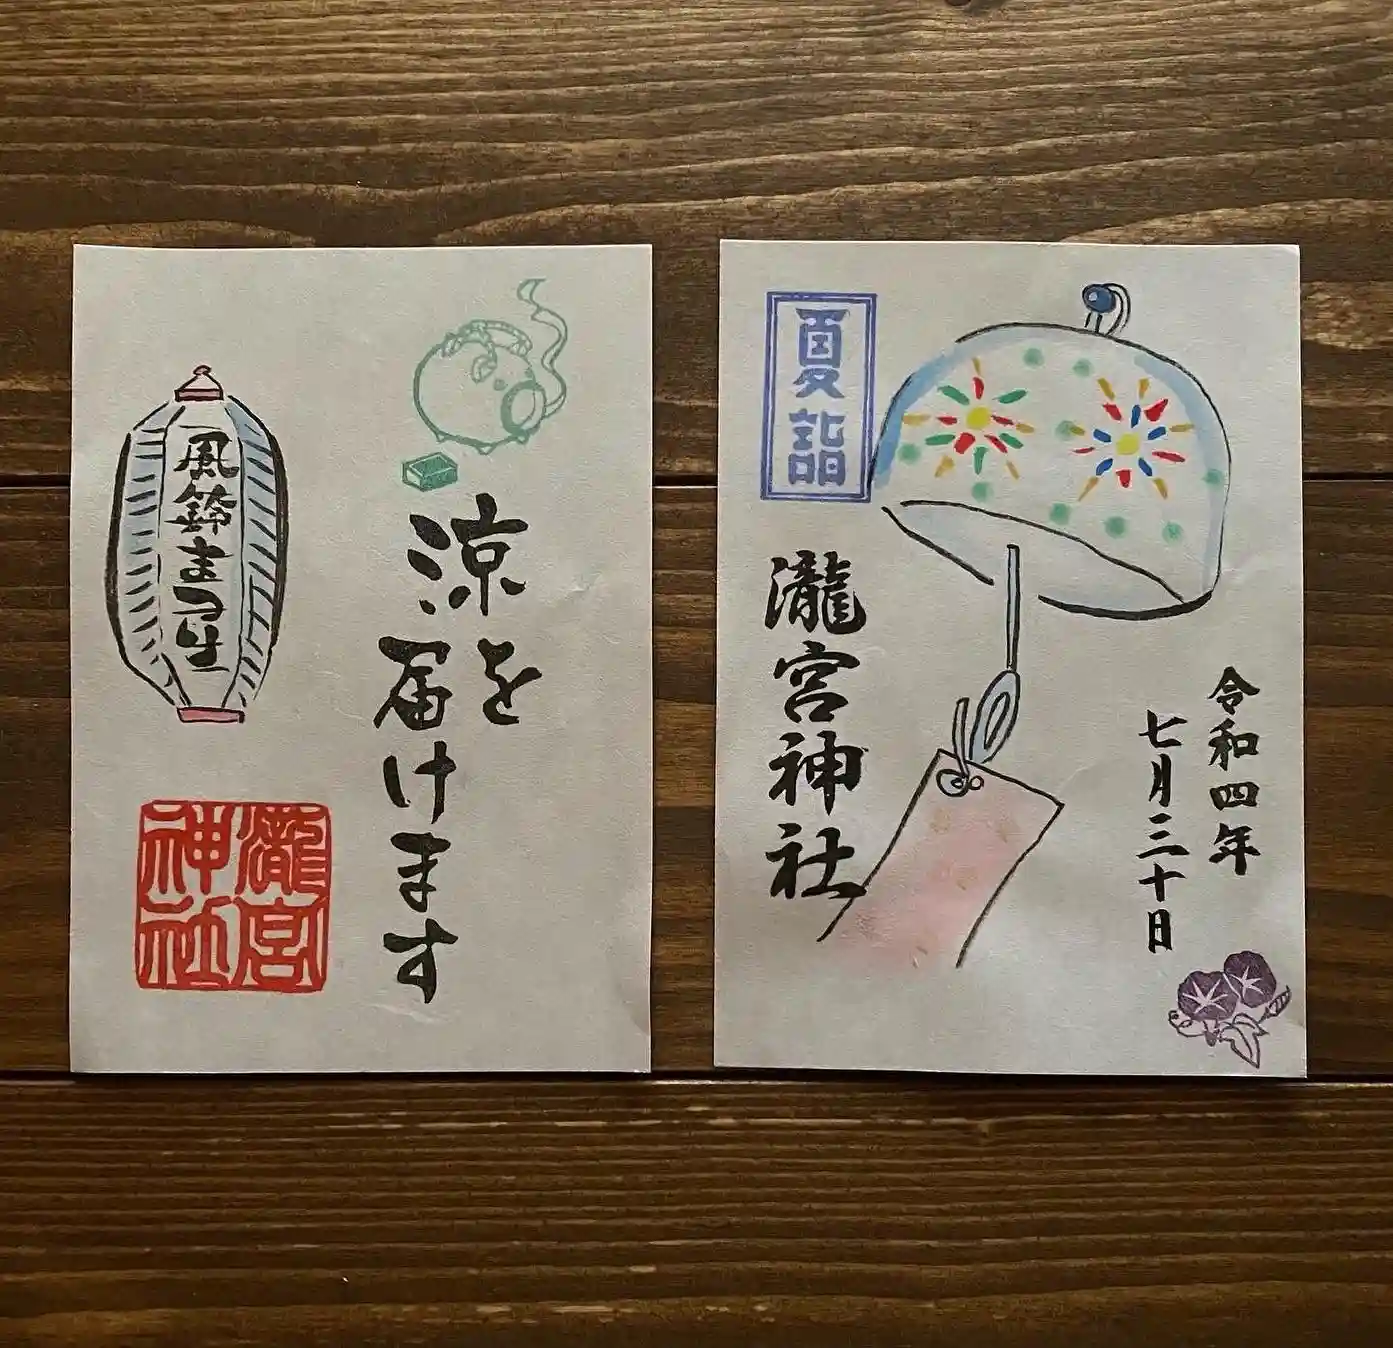 風鈴まつり
涼を
届けます
瀧宮
神社
夏詣
瀧宮神社
令和四年
七月三十日